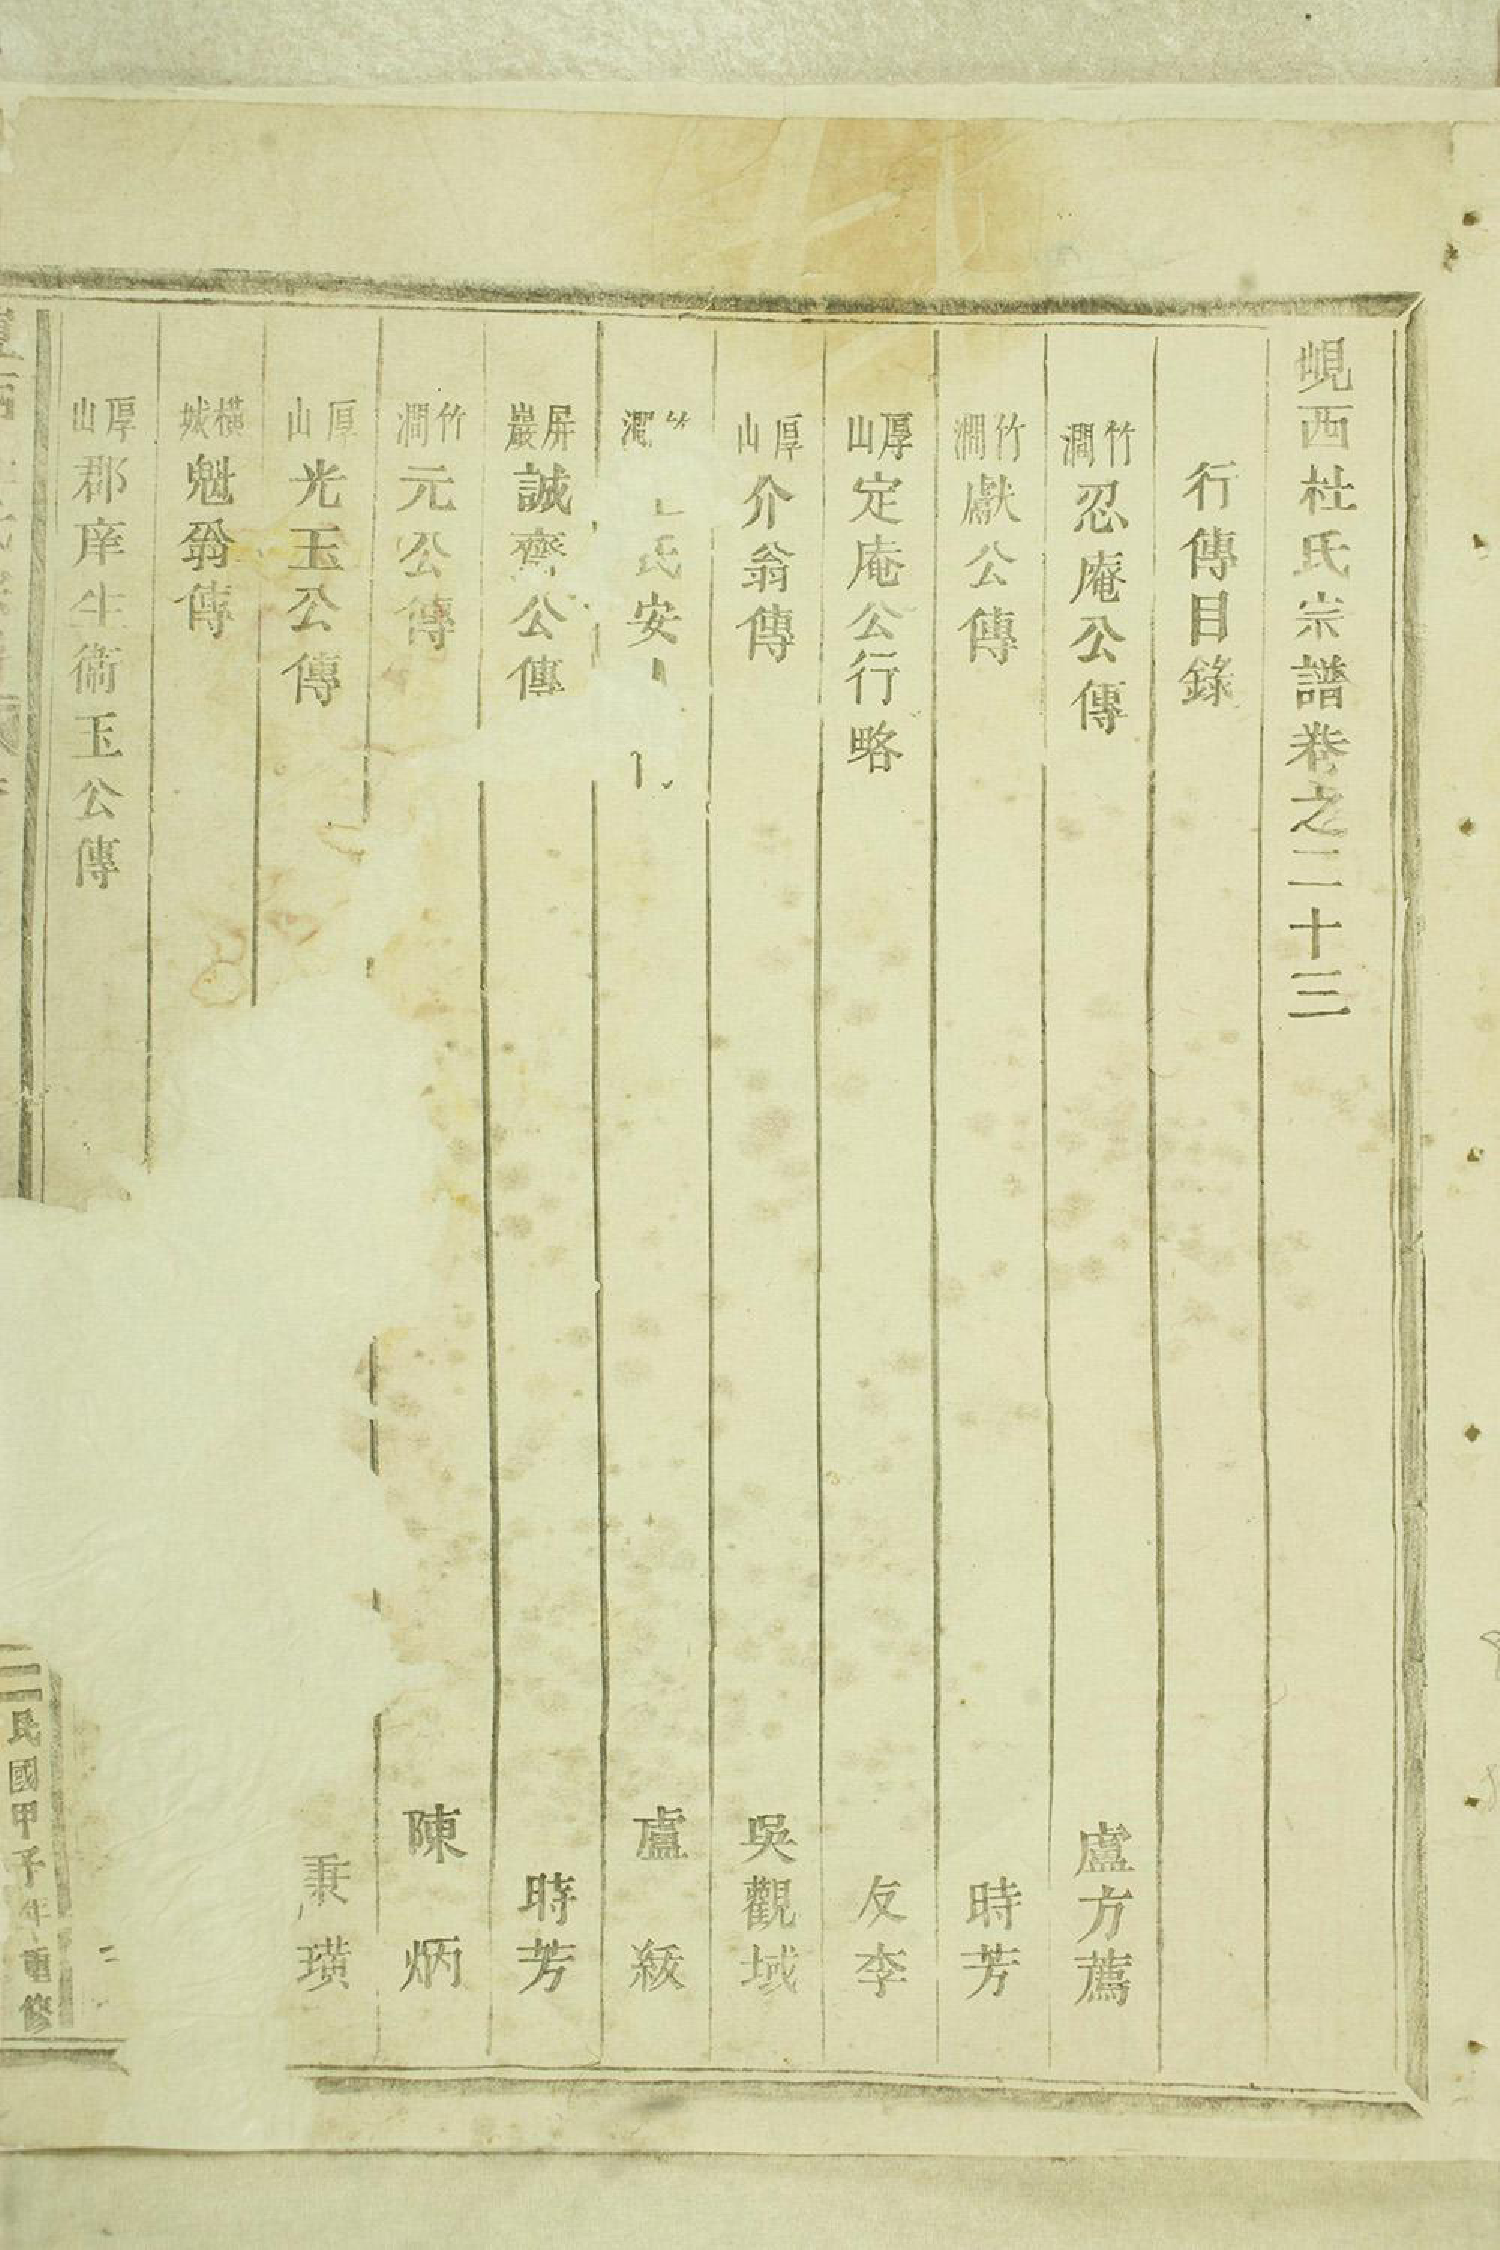 峴西杜氏宗譜卷之二十三
行傳目錄
竹澗忍庵公傳 盧方薦
竹澗獻公傳 時芳
厚山定庵公行略 友李
厚山介翁傳 吳觀域
澗 氏安 盧 級
屏巖誠齋公傳 時芳
竹澗元公傳 陳炳
厚山光玉公傳 秉璜
橫城魁翁傳
厚山郡庠生衞玉公傳
二
民國甲子年重修